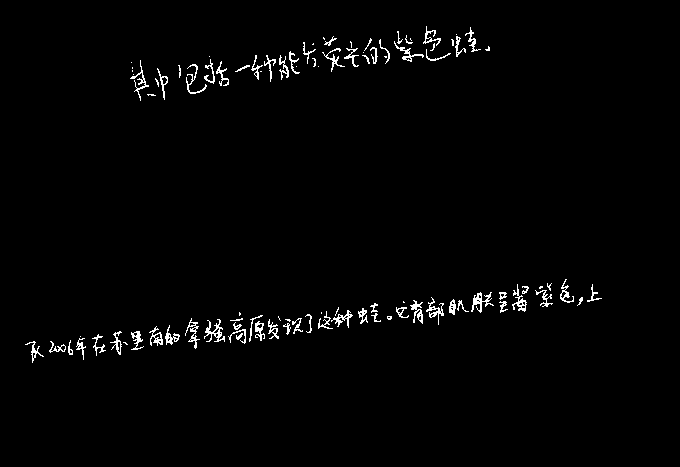 其中包括一种能发荧光的紫色蛙.
于2006年在苏里南的拿骚高原发现了这种蛙。它背部肌肤呈酱紫色,上